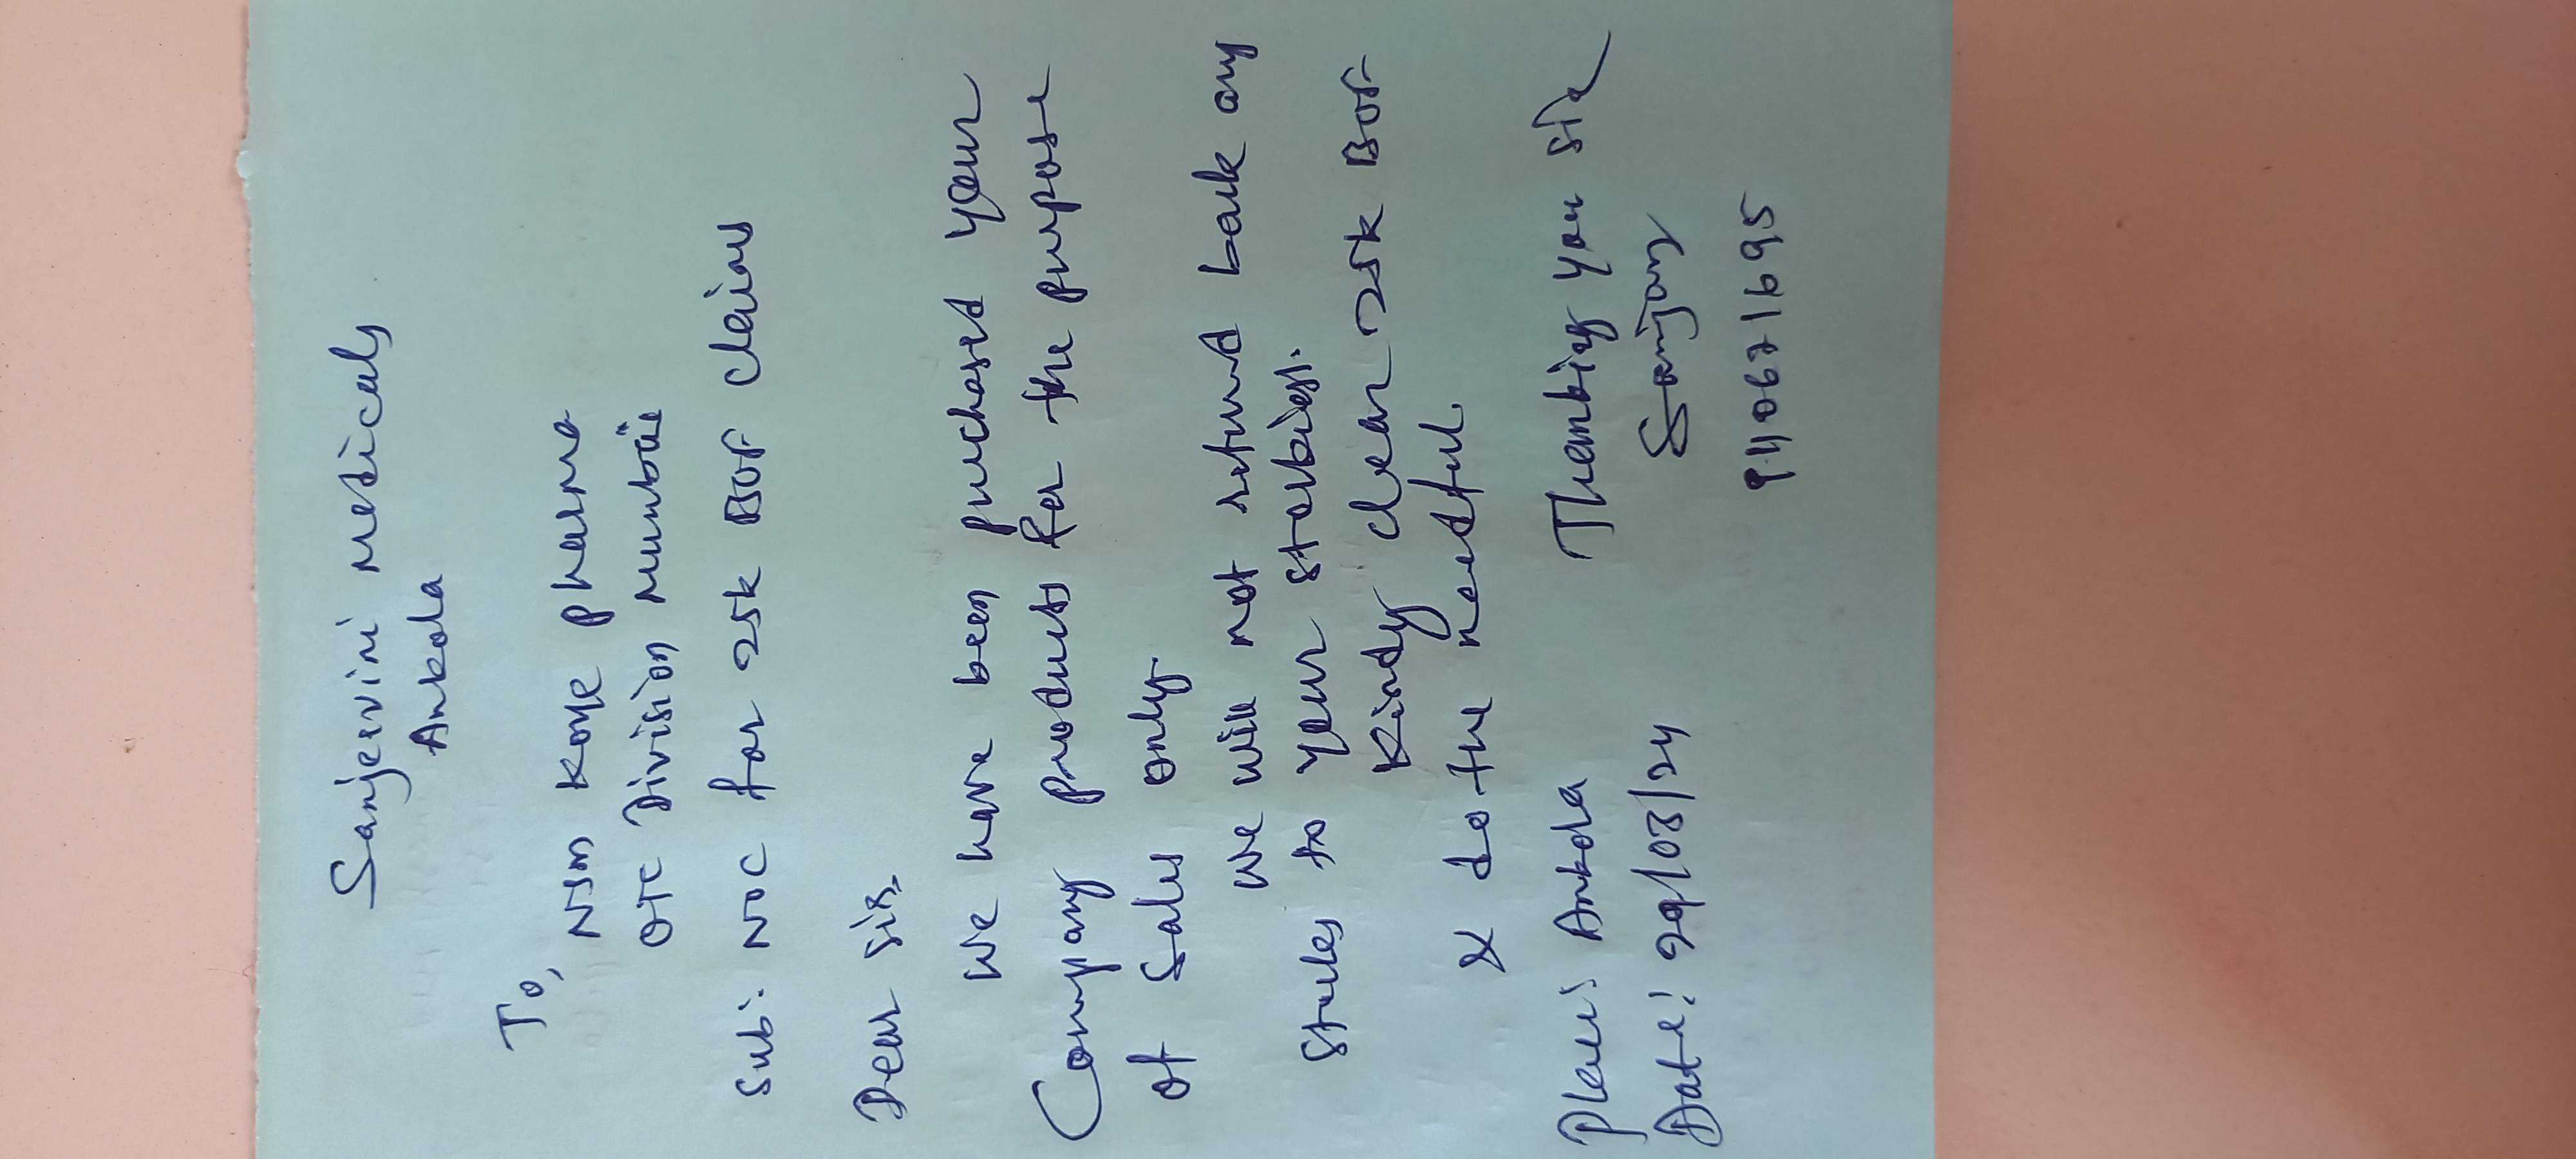 Sanjeevini medicals
Ankola
To,
NSM Kome pharma
OTC Division Mumbai
Sub: NOC for 25k BOF Claims
Dear Sir,
We have been purchased your
Company products for the purpose
of Sales only.
We will not return back any
Stocks to your stockiest.
Kindly clear 25k BOF
& do the needful.
Thanking you Sir
Place: Ankola
Sanjay
Date: 29/08/24